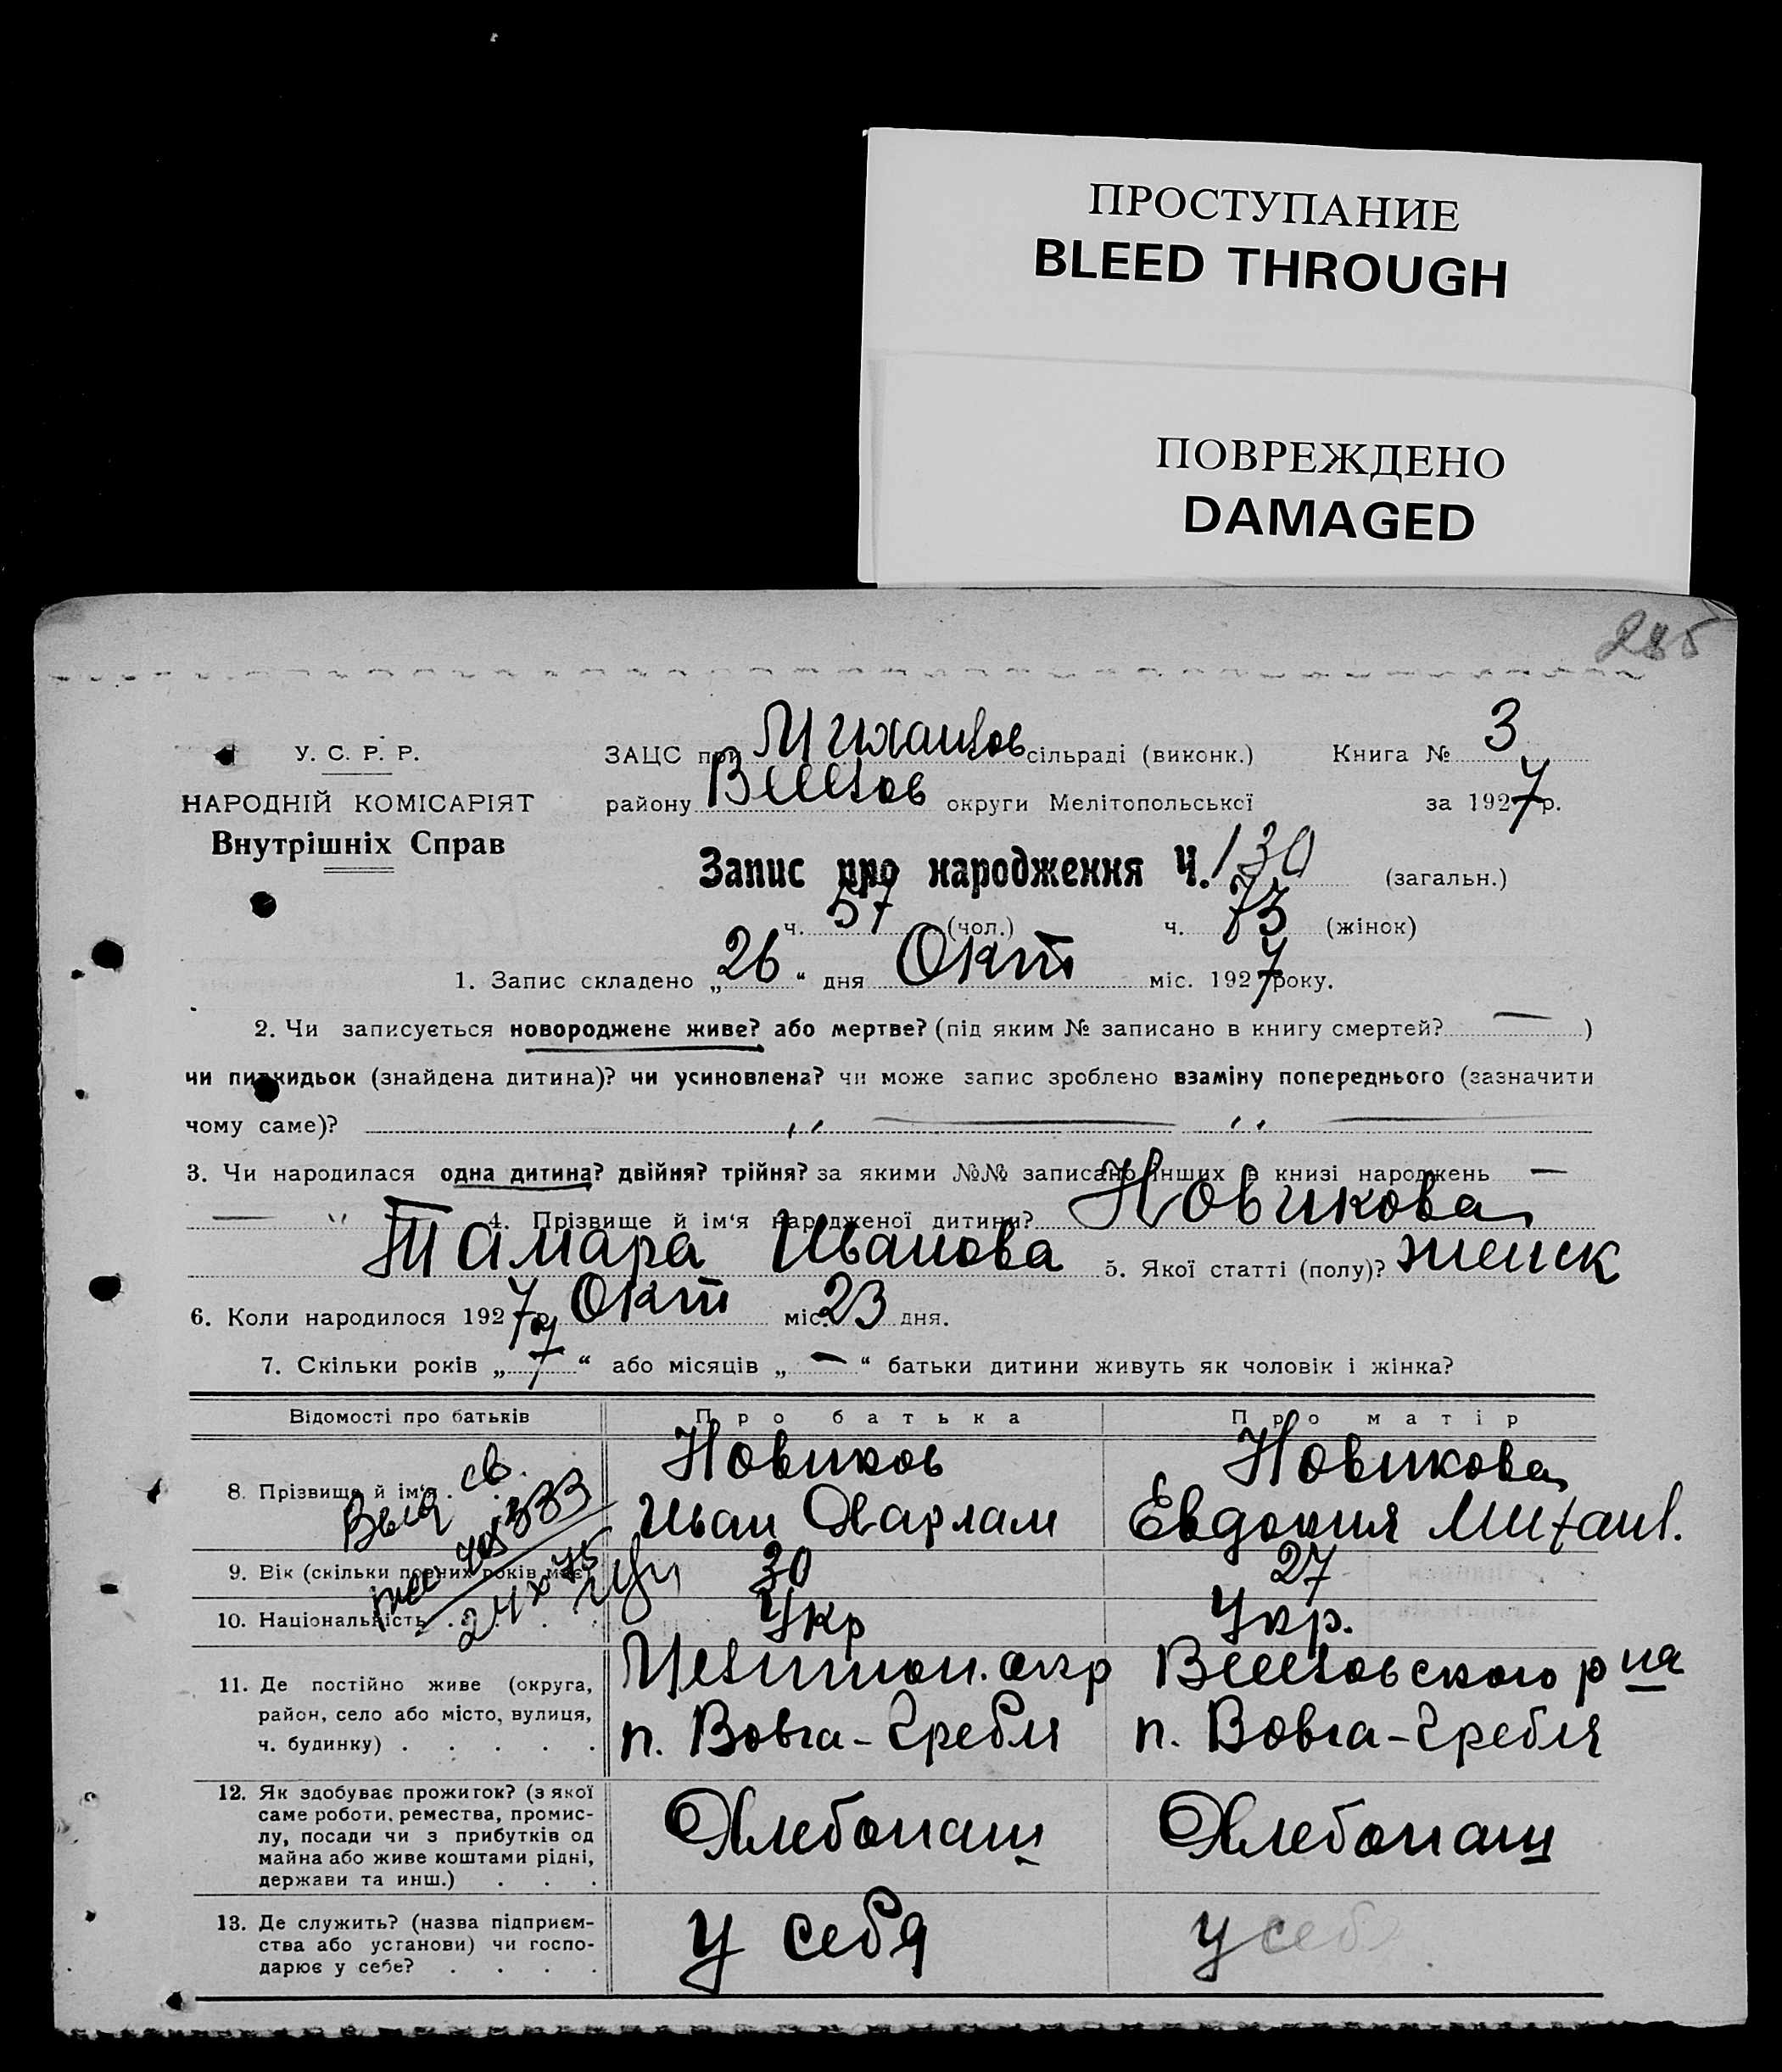 ПРОСТУПАНИЕ
BLEED THROUGH
ПОВРЕЖДЕНО
DAMAGED
285
У. С. Р. Р.
НАРОДНІЙ КОМІСАРІЯТ
Внутрішніх Справ
ЗАЦС при Михайлов сільраді (виконк.) Книга № 3
району Веселов округи Мелітопольської за 1927 р.
Запис про народження Ч. 130 (загальн.)
ч. 57 (чол.) ч. 73 (жінок)
1. Запис складено „26“ дня Окт міс. 1927 року.
2. Чи записується новороджене живе? або мертве? (під яким № записано в книгу смертей? — )
чи підкидьок (знайдена дитина)? чи усиновлена? чи може запис зроблено взаміну попереднього (зазначити
чому саме)?
3. Чи народилася одна дитина? двійня? трійня? за якими №№ записано інших в книзі народжень —
— " 4. Прізвище й ім'я народженої дитини? Новикова
Тамара Иванова 5. Якої статті (полу)? женск
6. Коли народилося 1927 р. Окт міс. 23 дня.
7. Скільки років „7“ або місяців „—“ батьки дитини живуть як чоловік і жінка?
Відомості про батьків Про батька Про матір
8. Прізвище й ім'я Новиков Новикова
Иван Харлам Евдокия Михаил.
9. Вік (скільки повних років має) 30 27
10. Національність Укр Укр.
11. Де постійно живе (округа, район, село або місто, вулиця, ч. будинку) Мелитоп. окр Веселовского р на
п. Вовча-Гребля п. Вовча-Гребля
12. Як здобуває прожиток? (з якої саме роботи, ремества, промислу, посади чи з прибутків од майна або живе коштами рідні, держави та инш.) Хлебопаш Хлебопаш
13. Де служить? (назва підприємства або установи) чи господарює у себе? у себя у себ